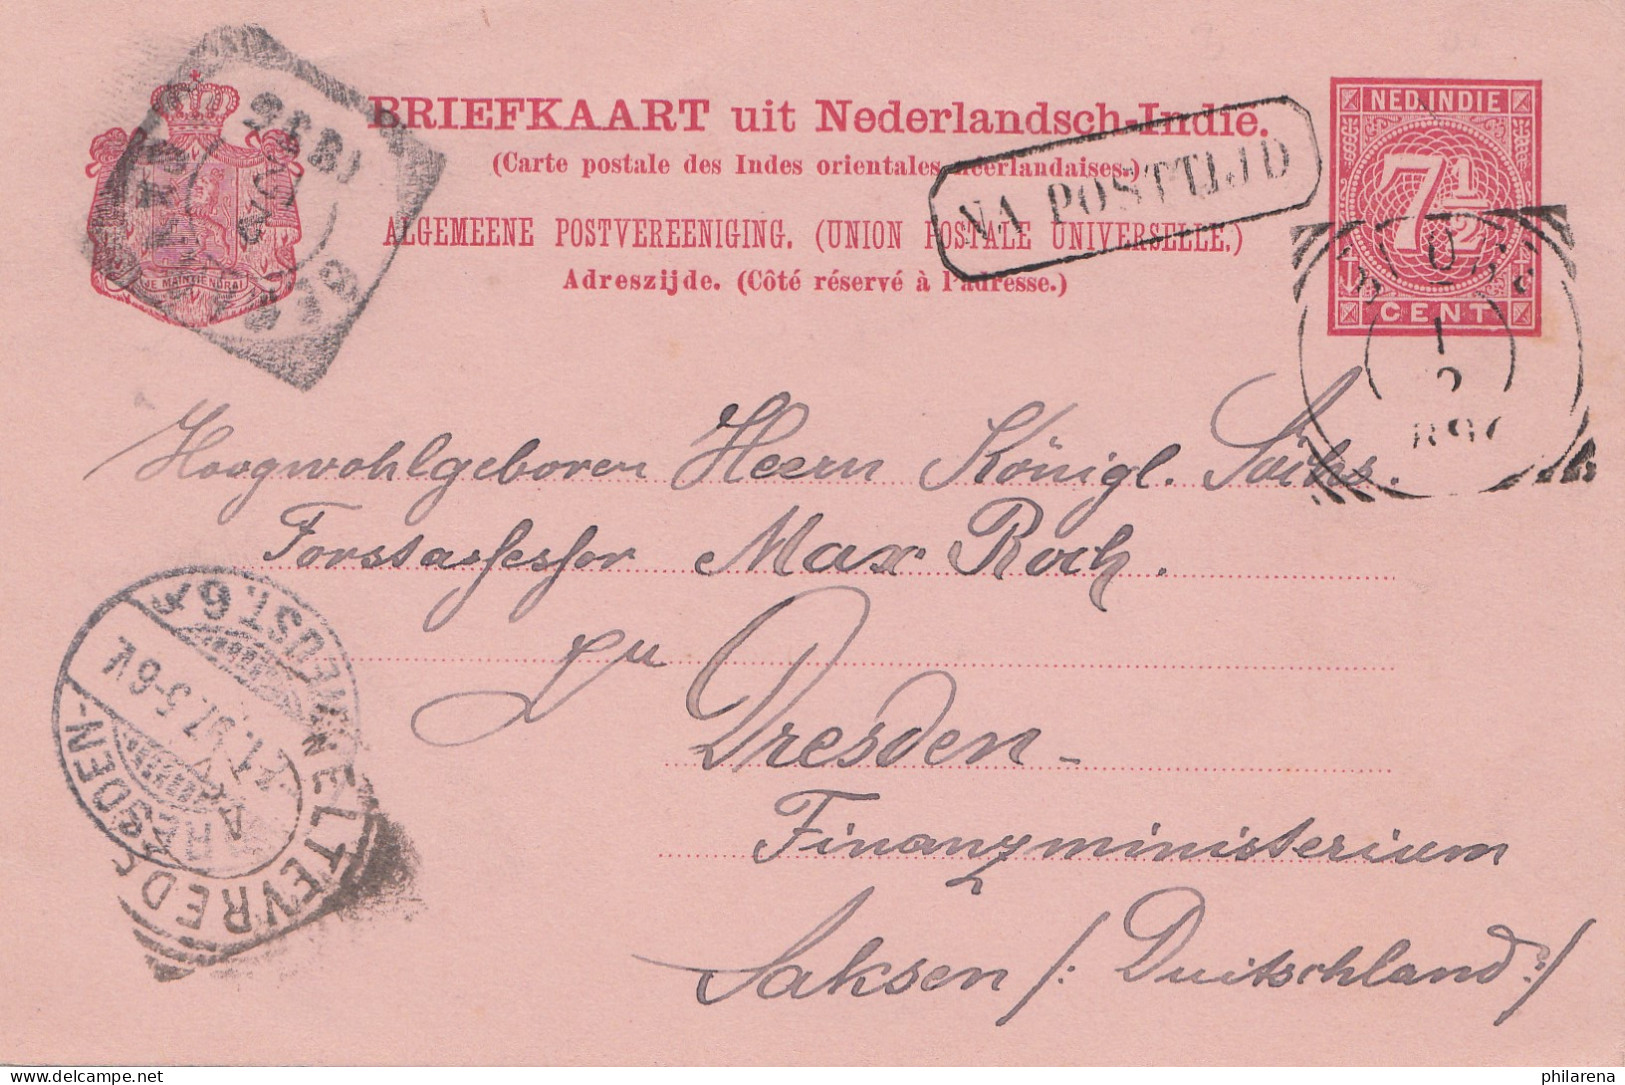 BRIEFKAART uit Nederlandsch-Indie.
(Carte postale des Indes orientales néerlandaises.)
ALGEMEENE POSTVEREENIGING. (UNION POSTALE UNIVERSELLE.)
Adreszijde. (Côté réservé à l'adresse.)
NA POSTTIJD
NED. INDIE
7 1/2
CENT
JE MAINTIENDRAI
Hoogwohlgeboren Heern Königl. Sächs.
Forstassessor Max Roch.
zu
Dresden-
Finanzministerium
Saksen /: Duitschland :/
DRESDEN-
NEUST. 6
21.1.97. 5-6V.
WELTEVREDEN
delcampe.net
philarena